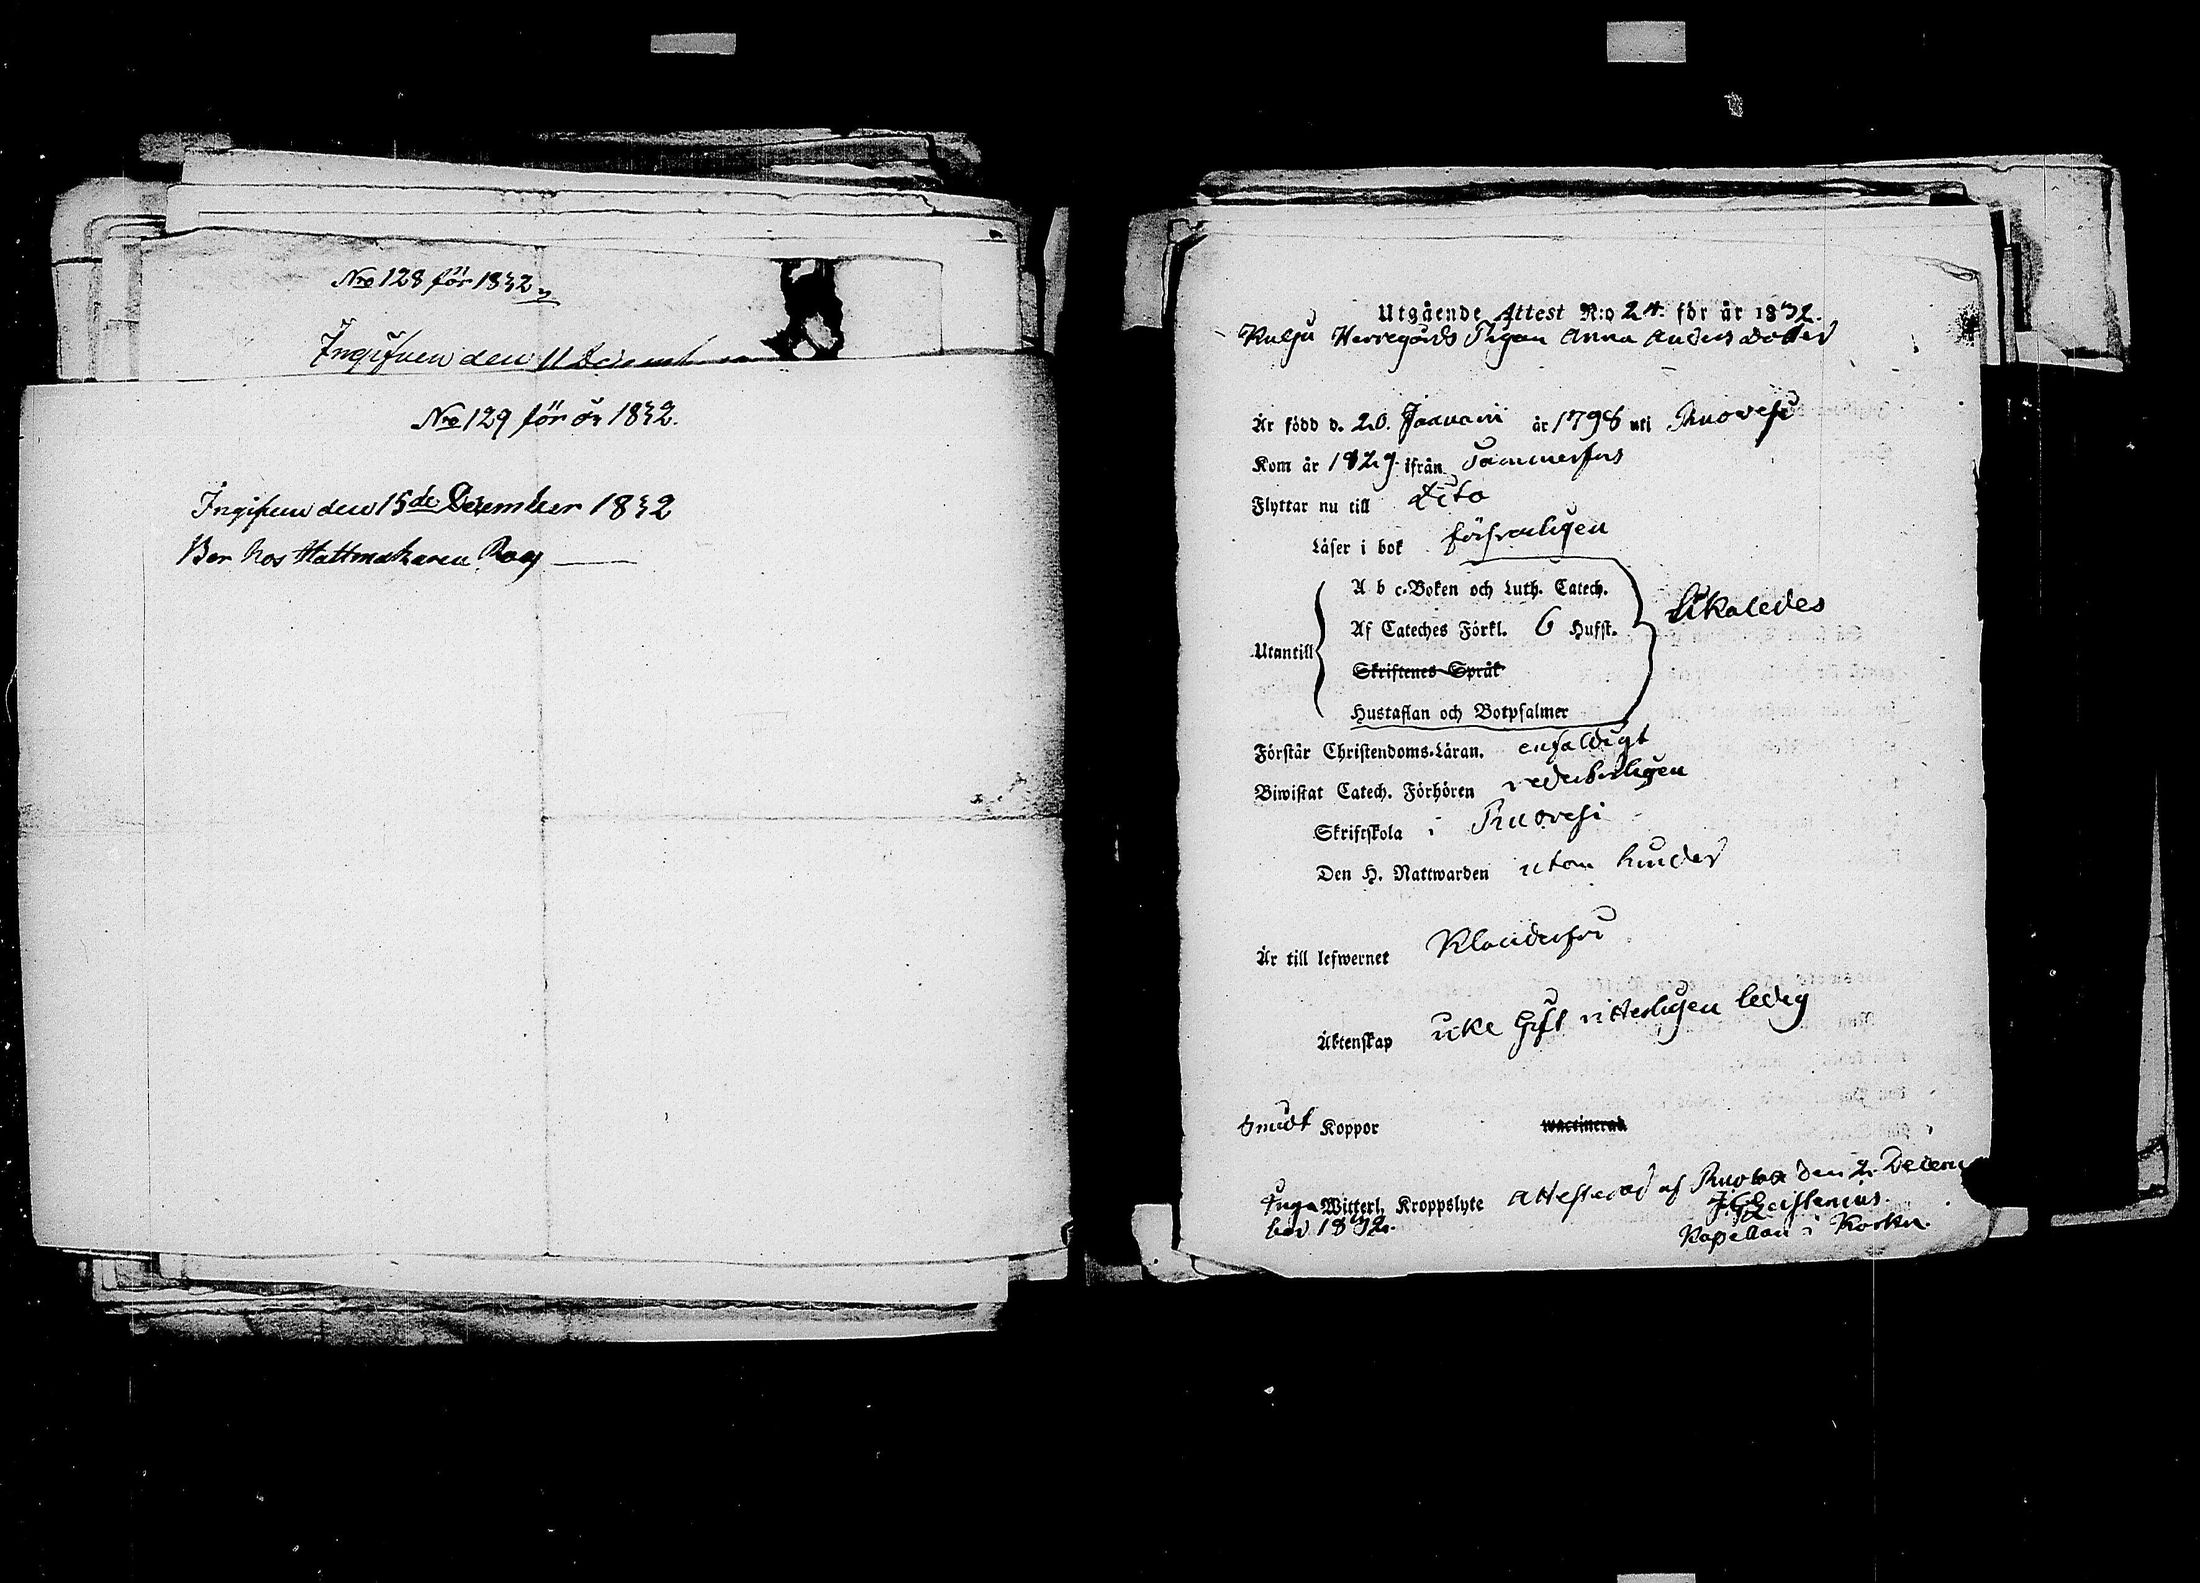 Nro 128 för 1832
Ingifven den 11 Decemb
Nro 129 för år 1832.
Ingifven den 15de December 1832
Bor hos Hattmakaren Roos
Utgående Attest N:o 24. för år 1832.
Kulju Herregårds Pigan Anna Anders dotter
Är född d. 20. Januarii år 1798 uti Ruovesi
Kom år 1829. ifrån Tammerfors
Flyttar nu till dito
Läser i bok försvarligen
A b c-Boken och Luth. Catech.
Af Cateches Förkl. 6 Hufst.
likaledes
Utantill
Skriftenes Språk
Hustaflan och Botpsalmer
Förstår Christendoms-Läran. enfaldigt
Biwistat Catech. Förhören vederbörligen
Skriftskola i Ruovesi
Den H. Nattwarden utan hinder
Är till lefwernet Klanderfri
Äktenskap icke gift vitterligen ledig
haft Koppor waccinerad
Inga Witterl. Kroppslyte Attesterad af den 2. Decem
ber 1832.
Kapellan i